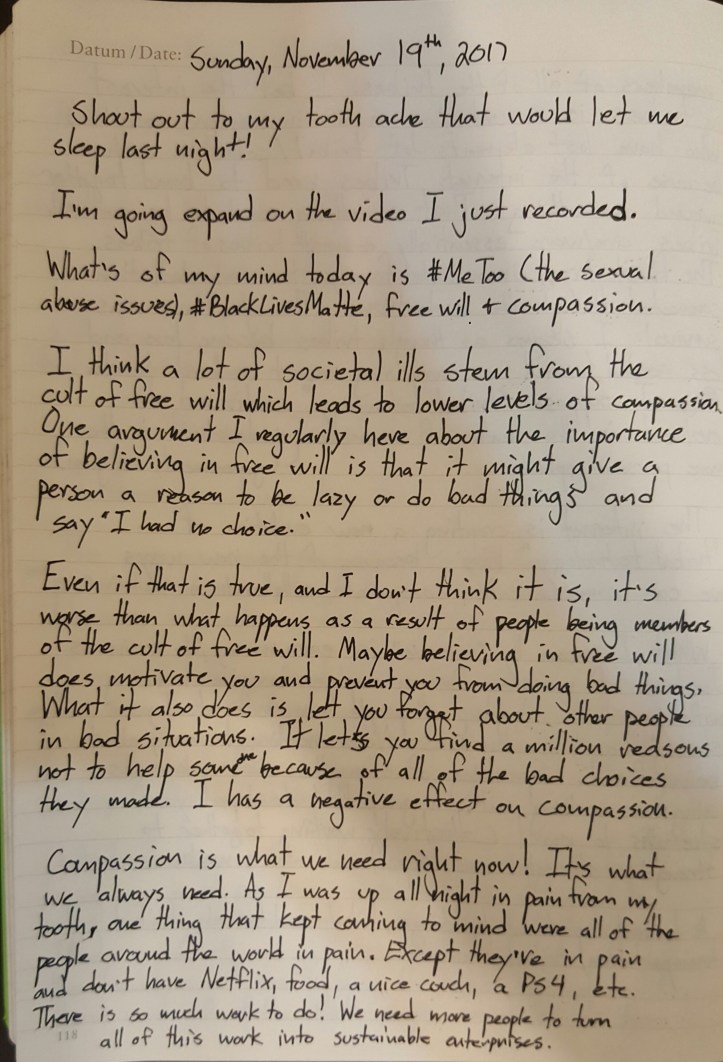 Datum / Date: Sunday, November 19th, 2017
Shout out to my tooth ache that would let me
sleep last night!
I'm going expand on the video I just recorded.
What's of my mind today is #MeToo (the sexual
abuse issues), #BlackLivesMatte, free will + compassion.
I think a lot of societal ills stem from the
cult of free will which leads to lower levels of compassion.
One argument I regularly here about the importance
of believing in free will is that it might give a
person a reason to be lazy or do bad things and
say "I had no choice."
Even if that is true, and I don't think it is, it's
worse than what happens as a result of people being members
of the cult of free will. Maybe believing in free will
does motivate you and prevent you from doing bad things.
What it also does is let you forget about other people
in bad situations. It lets you find a million reasons
not to help someone because of all of the bad choices
they made. I has a negative effect on compassion.
Compassion is what we need right now! It's what
we always need. As I was up all night in pain from my
tooth, one thing that kept coming to mind were all of the
people around the world in pain. Except they're in pain
and don't have Netflix, food, a nice couch, a PS4, etc.
There is so much work to do! We need more people to turn
118 all of this work into sustainable enterprises.